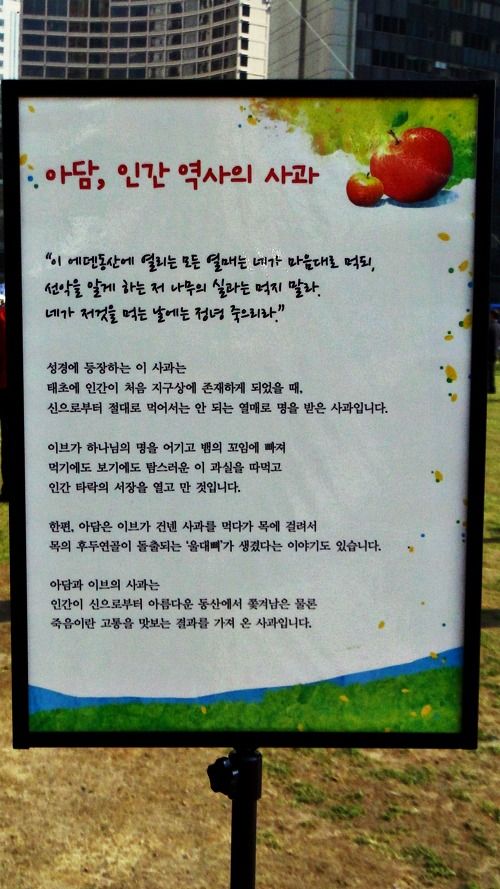 아담, 인간 역사의 사과
“이 에덴동산에 열리는 모든 열매는 네가 마음대로 먹되,
선악을 알게 하는 저 나무의 실과는 먹지 말라.
네가 저것을 먹는 날에는 정녕 죽으리라.”
성경에 등장하는 이 사과는
태초에 인간이 처음 지구상에 존재하게 되었을 때,
신으로부터 절대로 먹어서는 안 되는 열매로 명을 받은 사과입니다.
이브가 하나님의 명을 어기고 뱀의 꼬임에 빠져
먹기에도 보기에도 탐스러운 이 과실을 따먹고
인간 타락의 서장을 열고 만 것입니다.
한편, 아담은 이브가 건넨 사과를 먹다가 목에 걸려서
목의 후두연골이 돌출되는 ‘울대뼈’가 생겼다는 이야기도 있습니다.
아담과 이브의 사과는
인간이 신으로부터 아름다운 동산에서 쫓겨남은 물론
죽음이란 고통을 맛보는 결과를 가져 온 사과입니다.